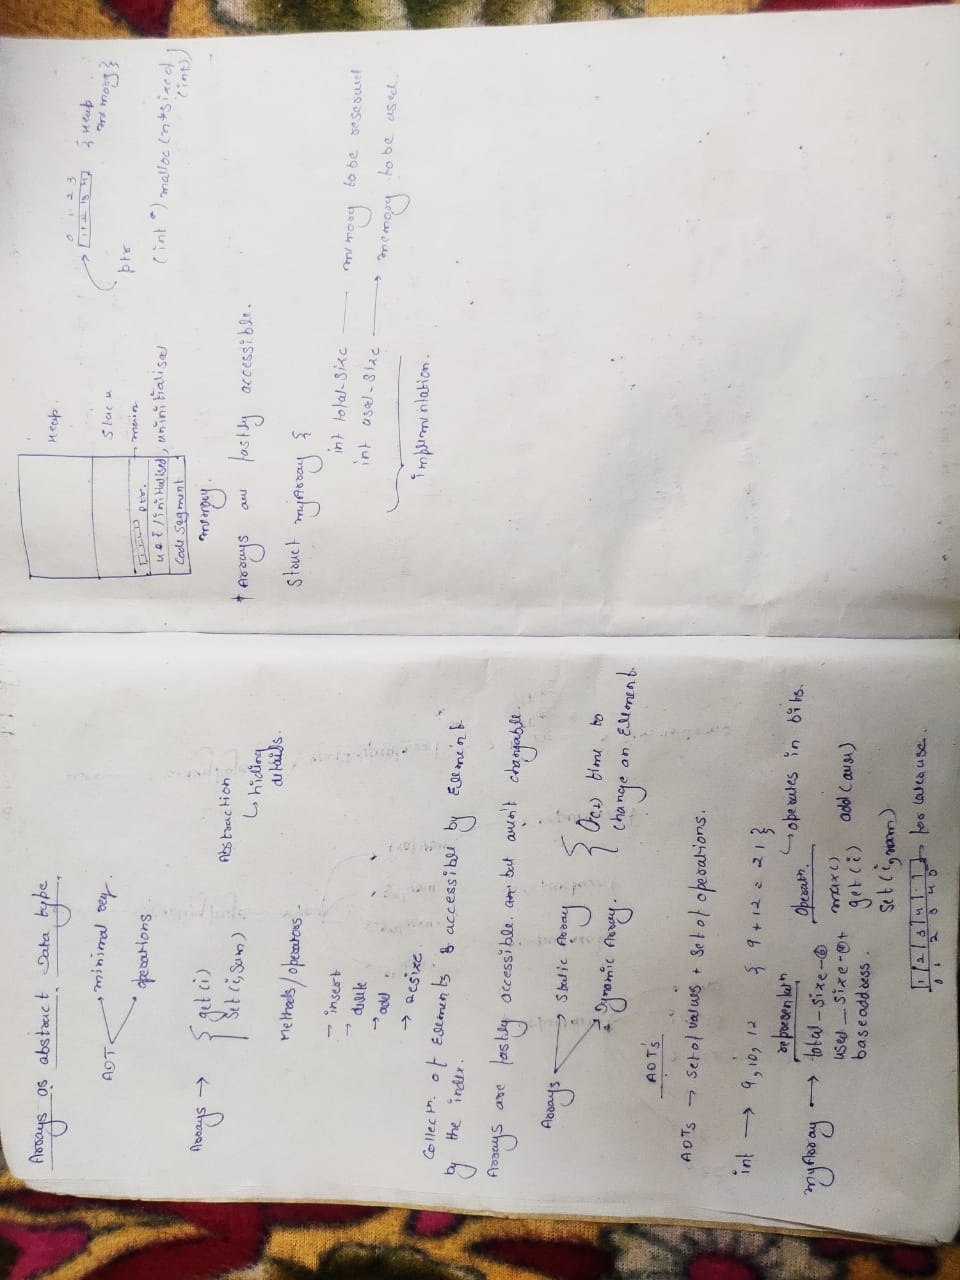 Arrays as abstract Data type.
ADT → minimal rep.
→ operations
Arrays → { get(i)
set(i, num)
Abstraction
↳ hiding
details.
Methods/operators.
→ insert
→ delete
→ add
→ resize
Collectn. of Elements & accessible by Element
by the index.
Arrays are fastly accessible but aren't changable.
Arrays → Static Array
→ Dynamic Array.
{ O(1) time to
change an Element.
ADT's
ADTs → set of values + set of operations.
int → 9, 10, 12 { 9 + 12 = 21 }
representatn
operatn.
↳ operates in bits.
myArray → total-size-
used-size-
baseaddress.
max()
get(i)
set(i, num)
add(
1 2 3 4
0 1 2 3 4 5
for later use.
Heap.
Stack
ptr.
main
/initialised, uninitialised
Code Segment
memory.
0 1 2 3
ptr
{ Heap
memory}
(int *) malloc (n*sizeof
(int))
* Arrays are fastly accessible.
Struct myArray {
int total-size — memory to be reserved
int used-size → memory to be used.
implementation.